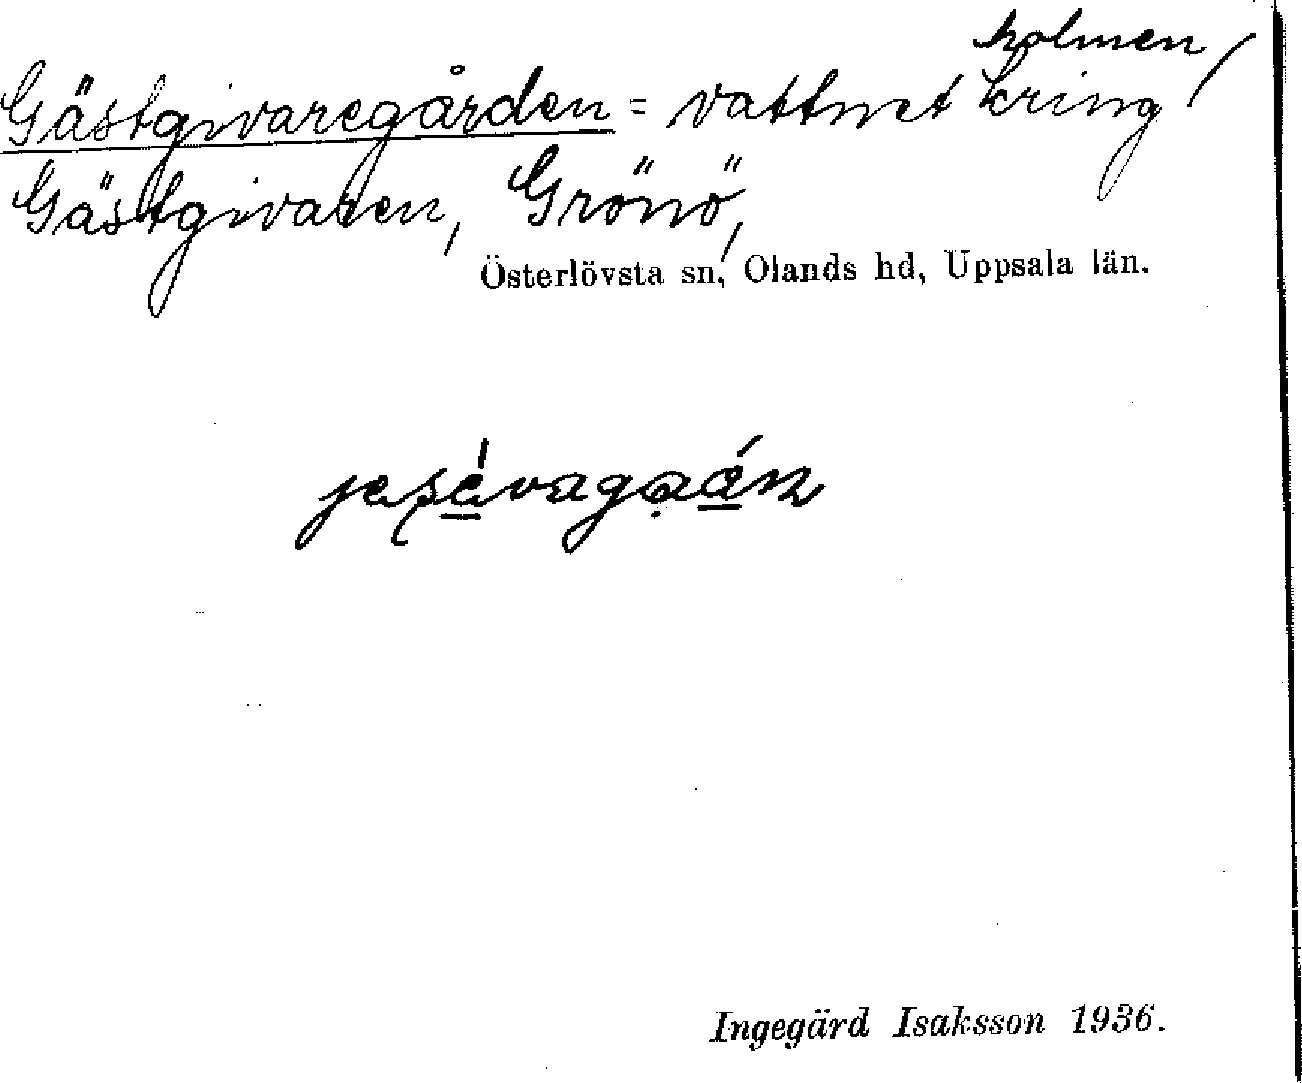 Gästgivaregården = vattnet kring holmen
Gästgivaren, Grönö,
Österlövsta sn, Olands hd, Uppsala län.
Ingegärd Isaksson 1936.